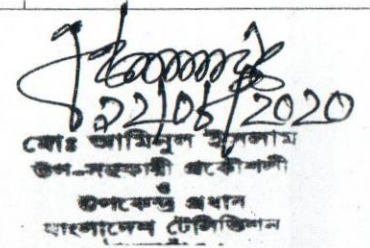 22/06/2020
মোঃ আমিনুল ইসলাম
উপ-সহকারী প্রকৌশলী
ও
উপকেন্দ্র প্রধান
বাংলাদেশ টেলিভিশন